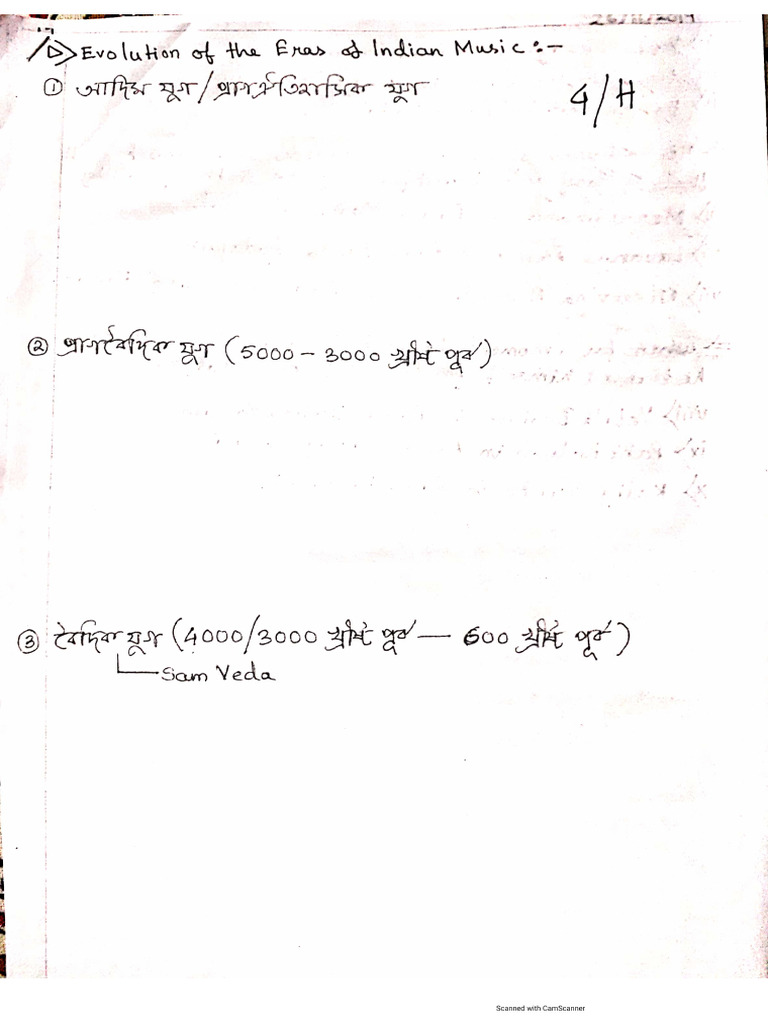 26/11/2019
Evolution of the Eras of Indian Music :-
① আদিম যুগ/প্রাগঐতিহাসিক যুগ
4/H
② প্রাগবৈদিক যুগ (5000 - 3000 খ্রীষ্ট পূর্ব)
③ বৈদিক যুগ (4000/3000 খ্রীষ্ট পূর্ব — 600 খ্রীষ্ট পূর্ব)
Sam Veda
Scanned with CamScanner